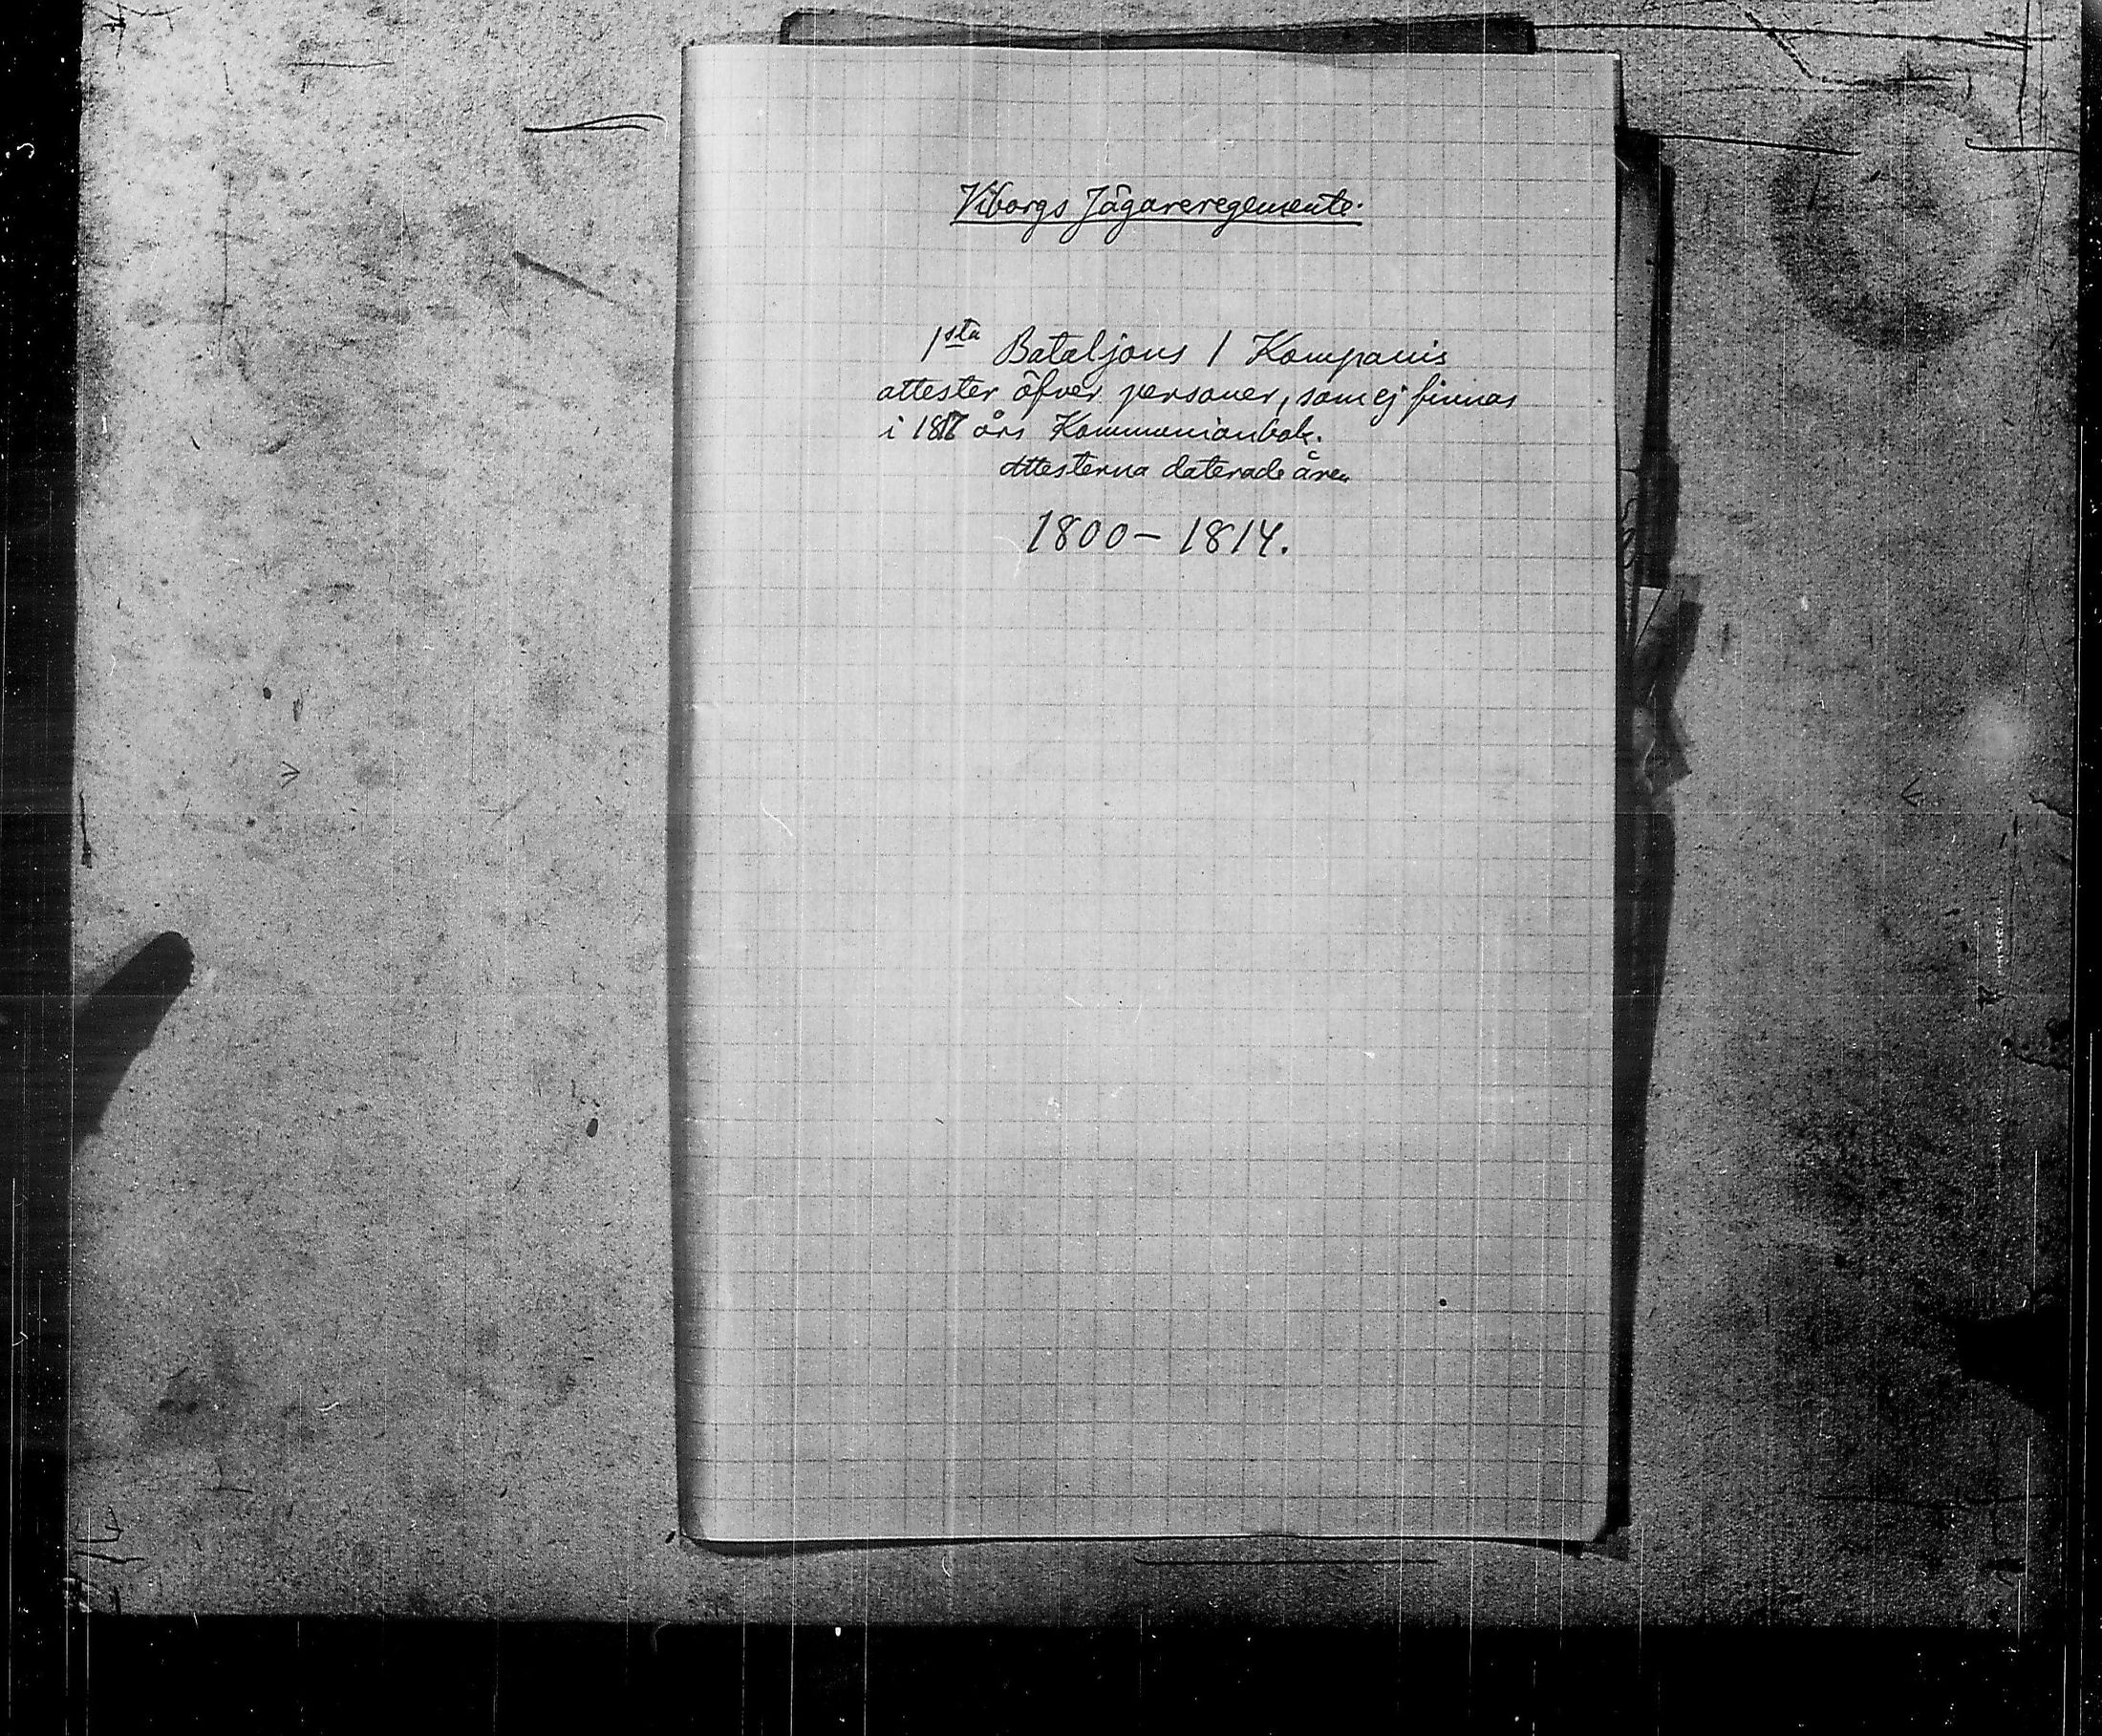 Viborgs Jägareregemente.
1sta Bataljons 1 Kompanis
attester öfver personer, som ej finnas
i 1817 års Kommunionbok.
Attesterna daterade åren
1800 – 1814.